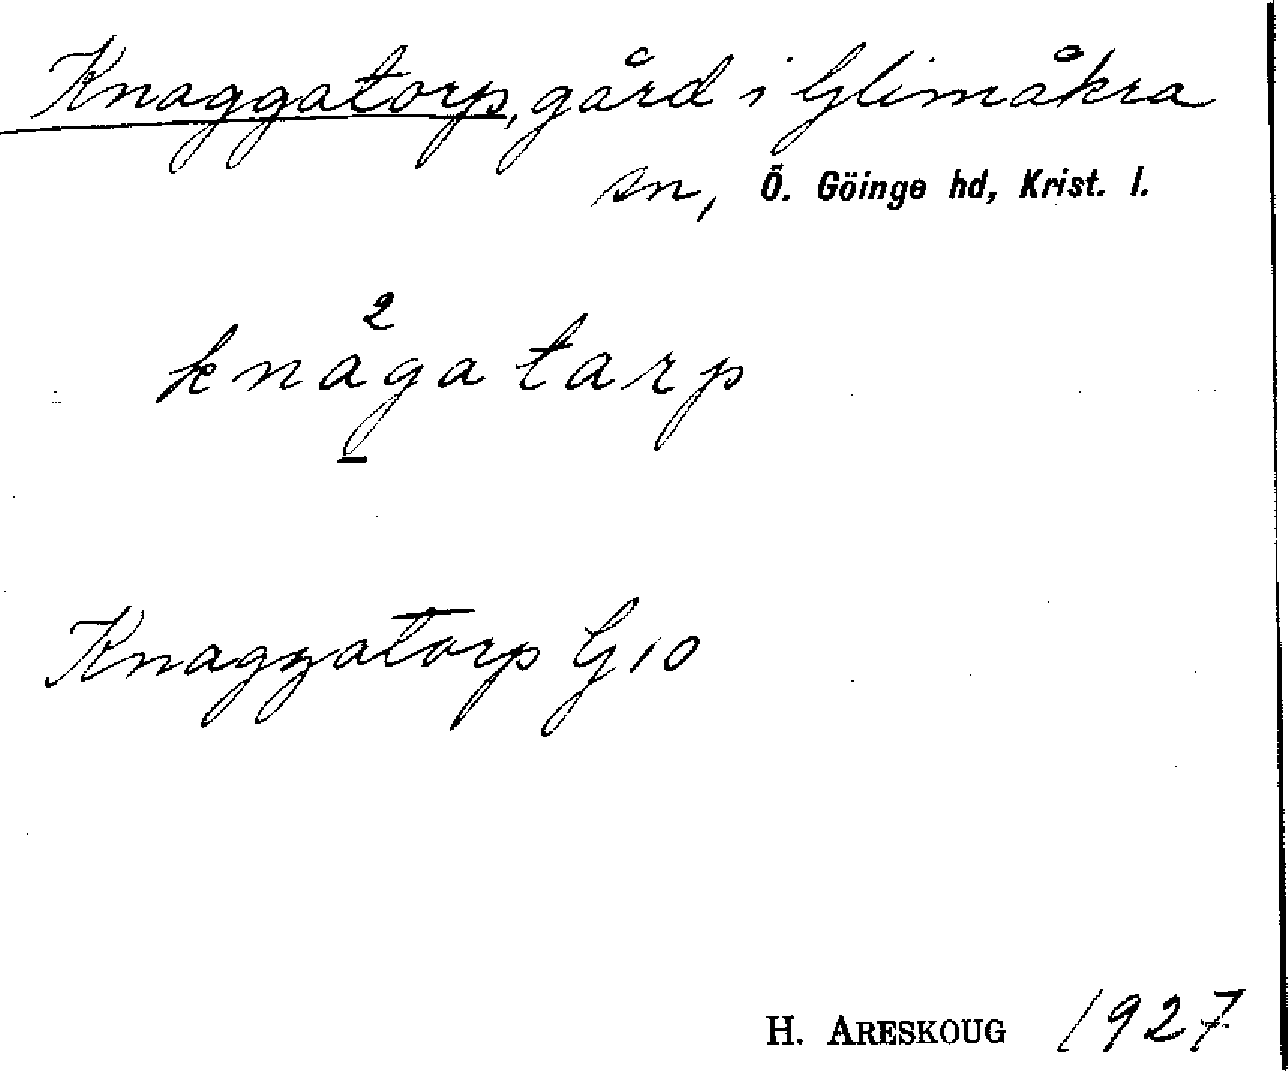 Knaggatorp, gård i Glimåkra
sn, Ö. Göinge hd, Krist. l.
2
knagatarp
Knaggatorp G10
H. ARESKOUG 1927